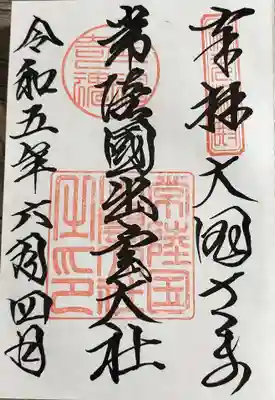 奉拝 大国さま
常陸國出雲大社
令和五年六月四日
常陸国出雲大社之印